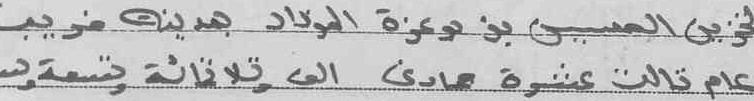 الحسين بن بوعزة المزداد بمدينة
عام ثالث عشرة جمادى الف وثلاثمائة وتسعة